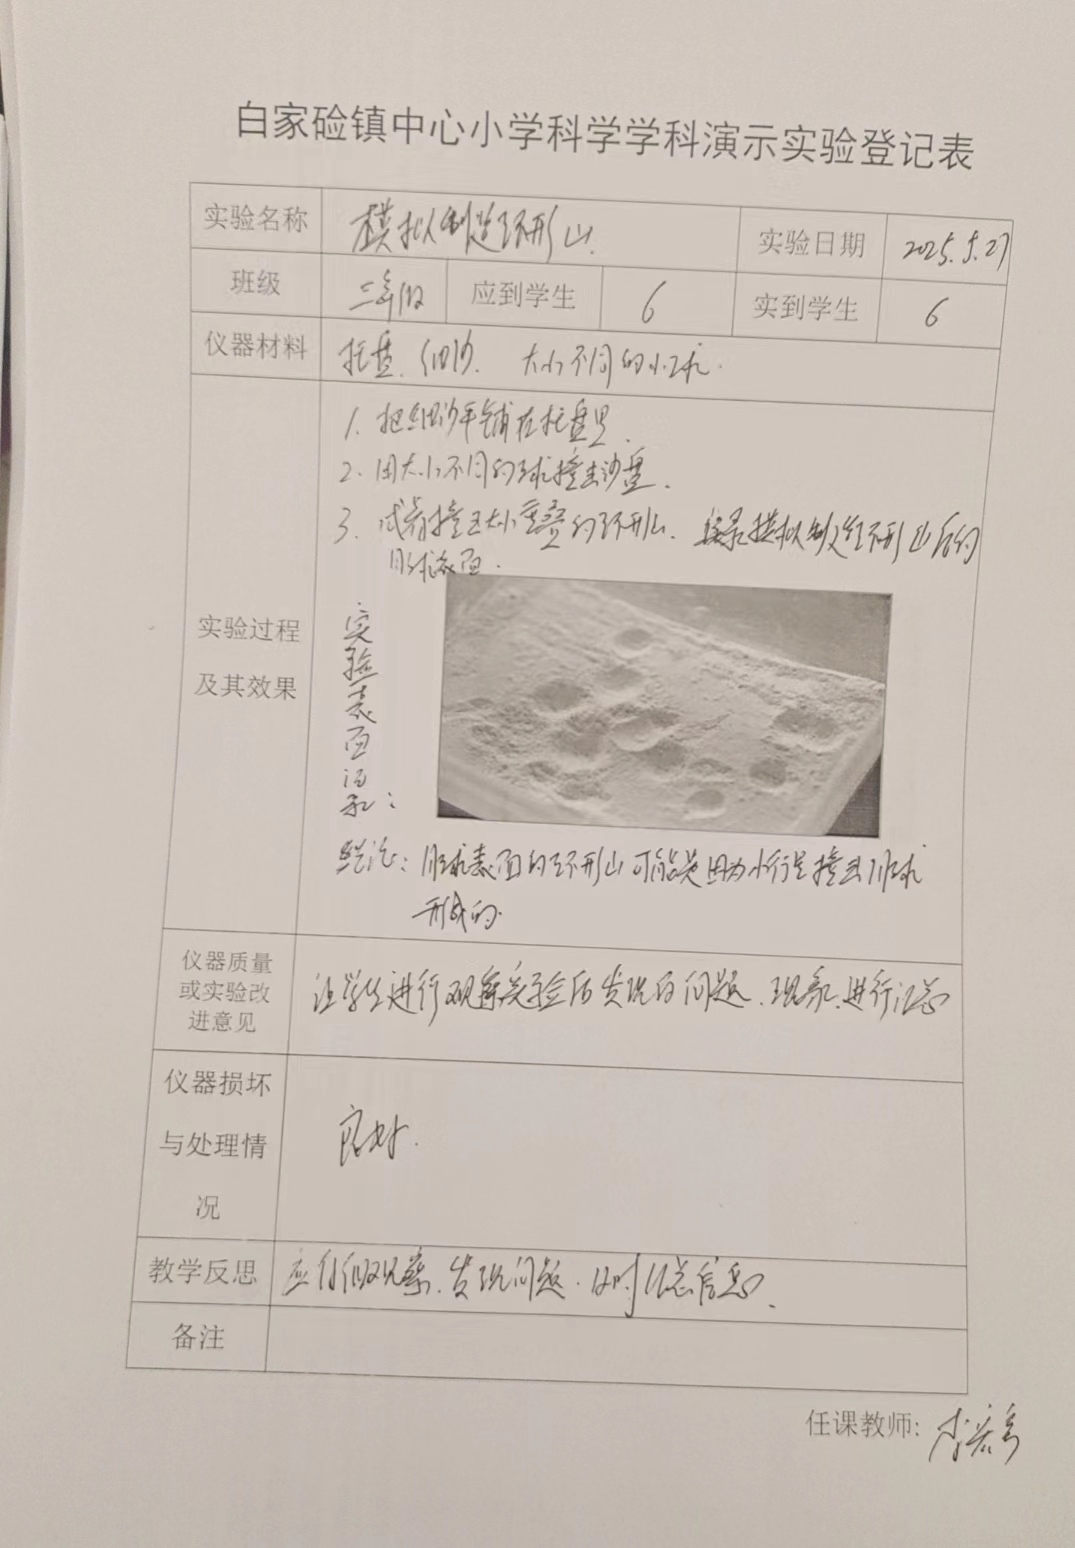 白家硷镇中心小学科学学科演示实验登记表
实验名称 模拟制造环形山. 实验日期 2025.5.27
班级 三年级 应到学生 6 实到学生 6
仪器材料 托盘、细沙. 大小不同的小球.
实验过程及其效果
1. 把细沙平铺在托盘里.
2. 用大小不同的球撞击沙盘.
3. 试着撞击大小重叠的环形山. 模拟制造环形山后的
月球表面.
实验表面记录:
结论: 月球表面的环形山可能是因为小行星撞击月球
形成的.
仪器质量或实验改进意见 让学生进行观察实验后发现的问题、现象、进行汇总
仪器损坏与处理情况 良好.
教学反思 应仔细观察、发现问题. 及时汇总信息.
备注
任课教师: 李